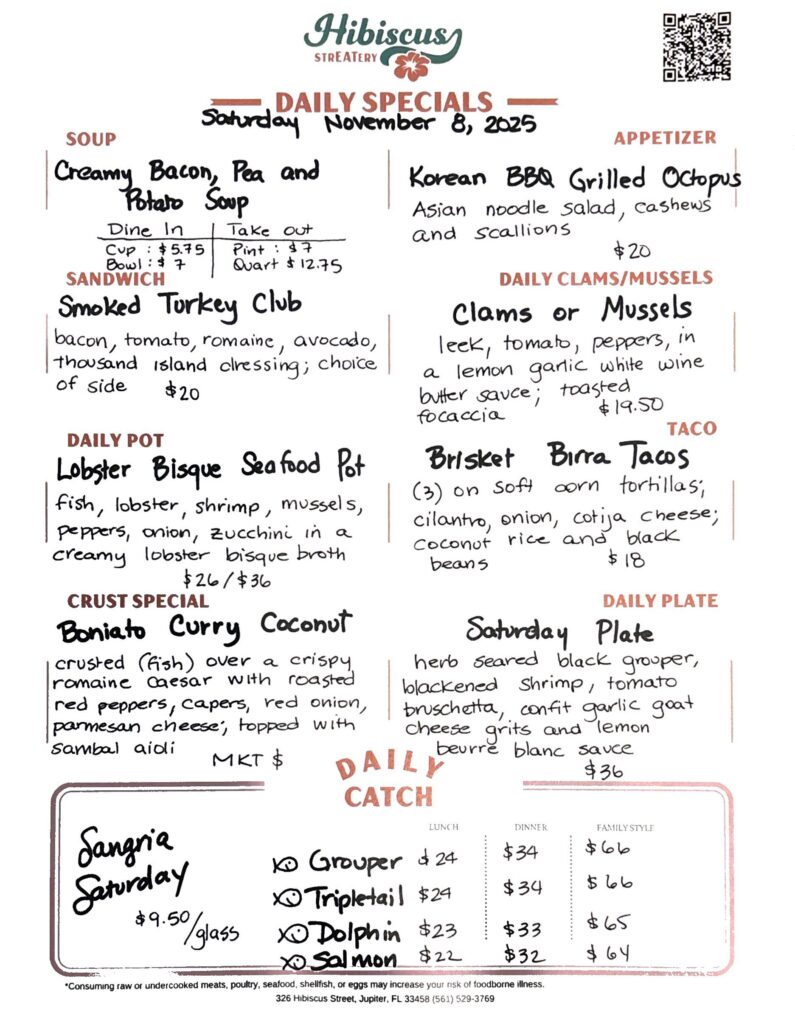 Hibiscus
STREATERY
DAILY SPECIALS
Saturday November 8, 2025
SOUP
Creamy Bacon, Pea and
Potato Soup
Dine In | Take out
Cup : $5.75 | Pint : $7
Bowl : $7 | Quart $12.75
SANDWICH
Smoked Turkey Club
bacon, tomato, romaine, avocado,
thousand island dressing; choice
of side $20
DAILY POT
Lobster Bisque Seafood Pot
fish, lobster, shrimp, mussels,
peppers, onion, zucchini in a
creamy lobster bisque broth
$26/$36
CRUST SPECIAL
Boniato Curry Coconut
crusted (fish) over a crispy
romaine caesar with roasted
red peppers, capers, red onion,
parmesan cheese; topped with
sambal aioli
MKT $
APPETIZER
Korean BBQ Grilled Octopus
Asian noodle salad, cashews
and scallions
$20
DAILY CLAMS/MUSSELS
Clams or Mussels
leek, tomato, peppers, in
a lemon garlic white wine
butter sauce; toasted
focaccia $19.50
TACO
Brisket Birra Tacos
(3) on soft corn tortillas;
cilantro, onion, cotija cheese;
coconut rice and black
beans $18
DAILY PLATE
Saturday Plate
herb seared black grouper,
blackened shrimp, tomato
bruschetta, confit garlic goat
cheese grits and lemon
beurre blanc sauce
$36
DAILY
CATCH
Sangria
Saturday
$9.50/glass
LUNCH DINNER FAMILY STYLE
Grouper $24 $34 $66
Tripletail $24 $34 $66
Dolphin $23 $33 $65
Salmon $22 $32 $64
*Consuming raw or undercooked meats, poultry, seafood, shellfish, or eggs may increase your risk of foodborne illness.
326 Hibiscus Street, Jupiter, FL 33458 (561) 529-3769